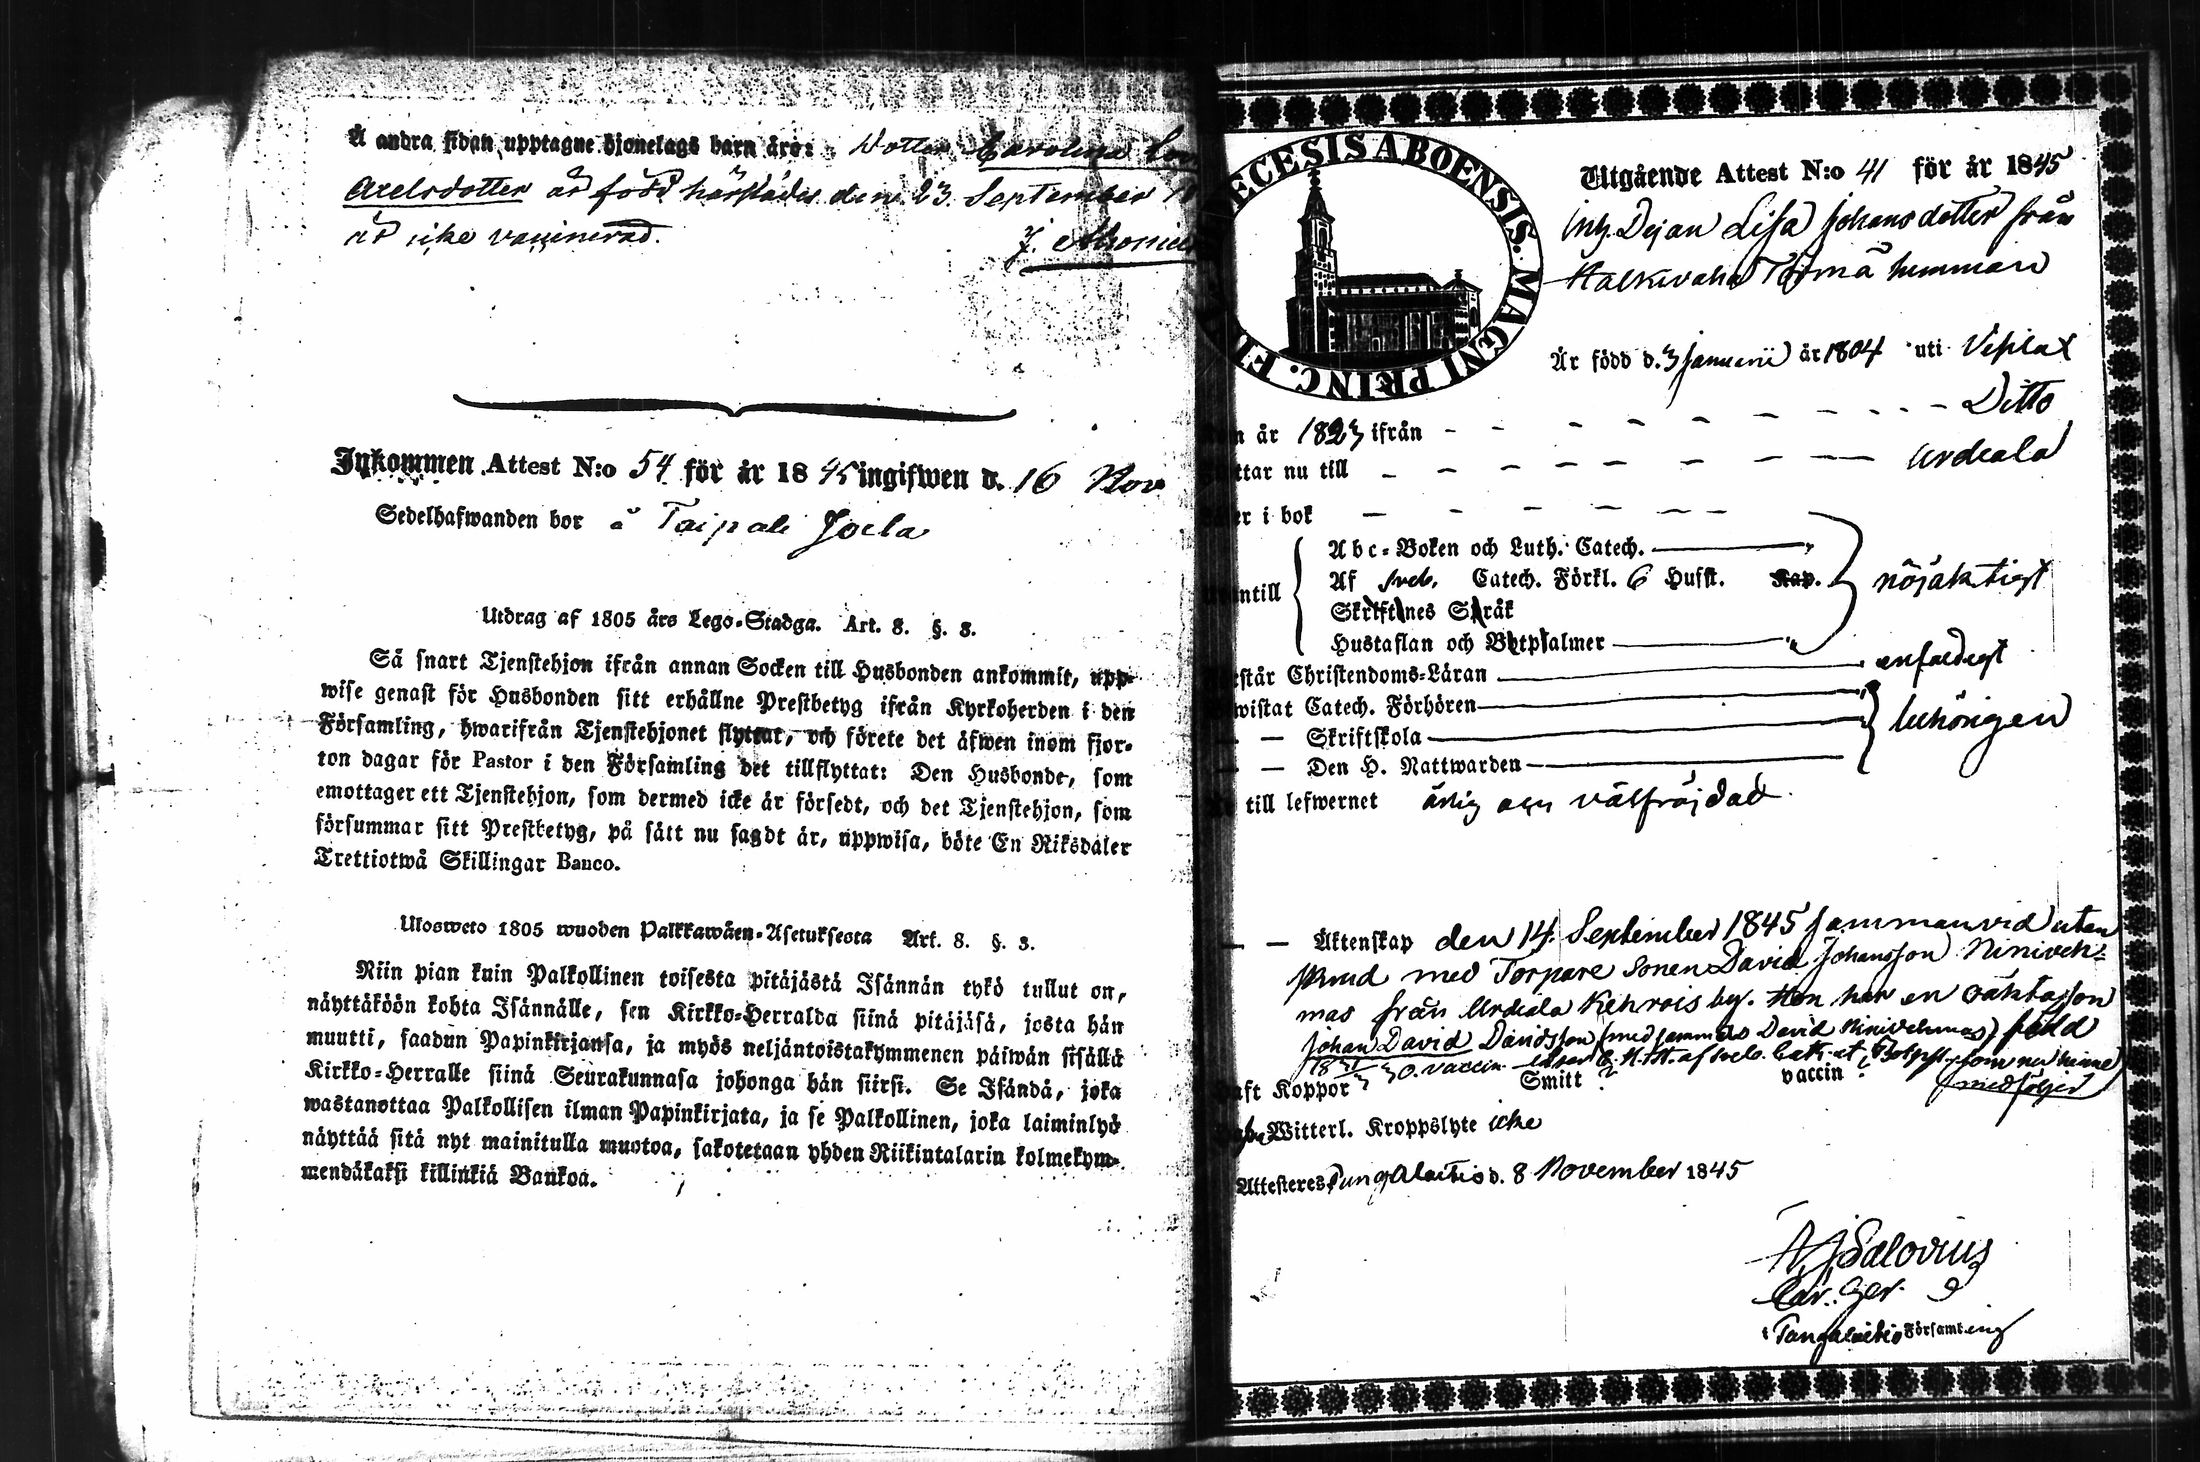 Å andra sidan upptagne hjonelags barn äro: Dotter Carolina
Axelsdotter är född härstädes den 23 September 18
är icke vaccinerad.
Inkommen Attest N:o 54 för år 1845 ingifwen d. 16 Nov
Sedelhafwanden bor å Taipale Jocla
Utdrag af 1805 års Lego-Stadga. Art. 8. §. 3.
Så snart Tjenstehjon ifrån annan Socken till Husbonden ankommit, upp-
wise genast för Husbonden sitt erhållne Prestbetyg ifrån Kyrkoherden i den
Församling, hwarifrån Tjenstehjonet flyttat, och förete det äfwen inom fjor-
ton dagar för Pastor i den Församling det tillflyttat: Den Husbonde, som
emottager ett Tjenstehjon, som dermed icke är försedt, och det Tjenstehjon, som
försummar sitt Prestbetyg, på sätt nu sagdt är, uppwisa, böte En Riksdaler
Trettiotwå Skillingar Banco.
Ulosweto 1805 wuoden Palkkawäen-Asetuksesta Art. 8. §. 3.
Niin pian kuin Palkollinen toisesta pitäjästä Isännän tykö tullut on,
näyttäköön kohta Isännälle, sen Kirkko-Herralda siinä pitäjäsä, josta hän
muutti, saadun Papinkirjansa, ja myös neljäntoistakymmenen päiwän sisällä
Kirkko-Herralle siinä Seurakunnasa johonga hän siirsi. Se Isändä, joka
wastanottaa Palkollisen ilman Papinkirjata, ja se Palkollinen, joka laiminlyö
näyttää sitä nyt mainitulla muotoa, sakotetaan yhden Riikintalarin kolmekym-
mendäkaksi killinkiä Bankoa.
ECESIS ABOENSIS. MAGNI PRINC. FI
Utgående Attest N:o 41 för år 1845
Inh. Dejan Lisa Johansdotter från
Halkivaha Törmä hemman
Är född d. 3 Januarii år 1804 uti Vesilax
n år 1823 ifrån - - - - - - - - Ditto
ttar nu till - - - - - - - - Urdiala
er i bok - - - - - -
ntill
Abc-Boken och Luth. Catech. "
Af Sveb. Catech. Förkl. 6 Hufst. Kap.
Skriftenes Språk
Hustaflan och Botpsalmer "
nöjaktigt
rstår Christendoms-Läran enfaldigt
wistat Catech. Förhören "
— — Skriftskola "
— — Den H. Nattwarden
behörigen
till lefwernet ärlig och välfräjdad
— — Äktenskap den 14 September 1845 sammanvid utan
skrud med Torpare Sonen David Johansson Niniveh-
mas från Urdiala Kehrois by. Hon har en oäkta son
Johan David Davidsson (med samma David Ninivehmas), född
Haft Koppor Smitt ? vaccin ? medföljer
Witterl. Kroppslyte icke
Attesteres Tungalaitio d. 8 November 1845
Salovius
i Tungalaitio Församling